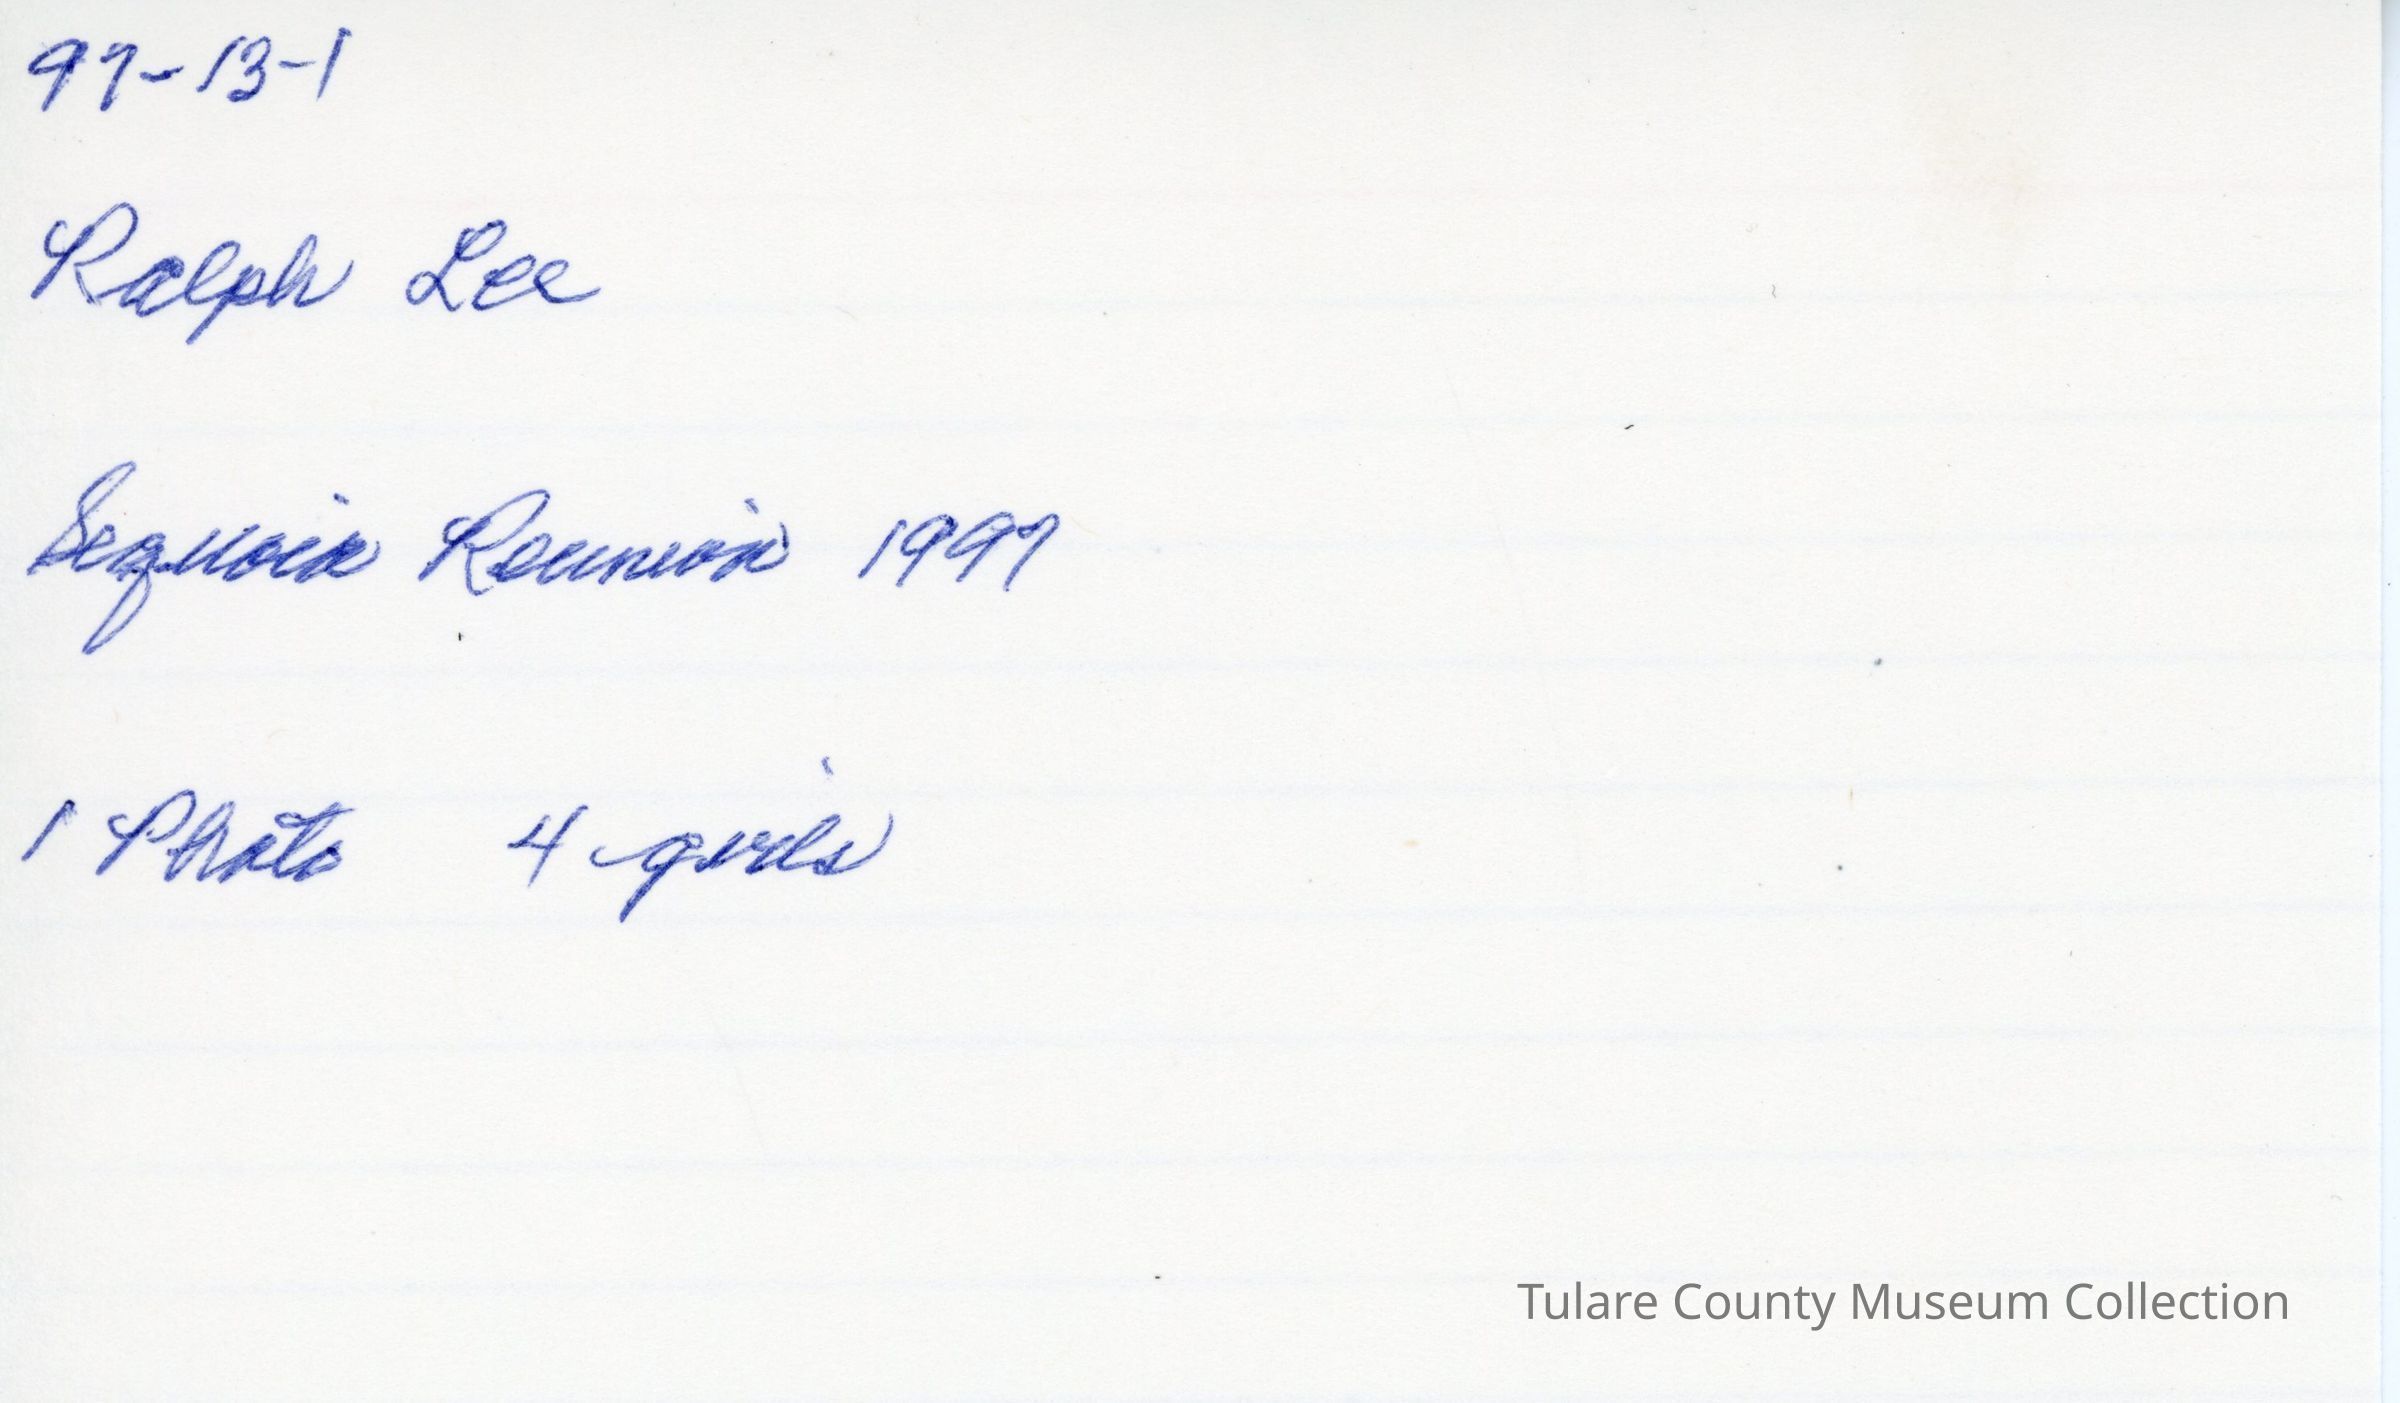 97-13-1
Ralph Lee
Sequoia Reunion 1997
1 Photo 4 girls
Tulare County Museum Collection